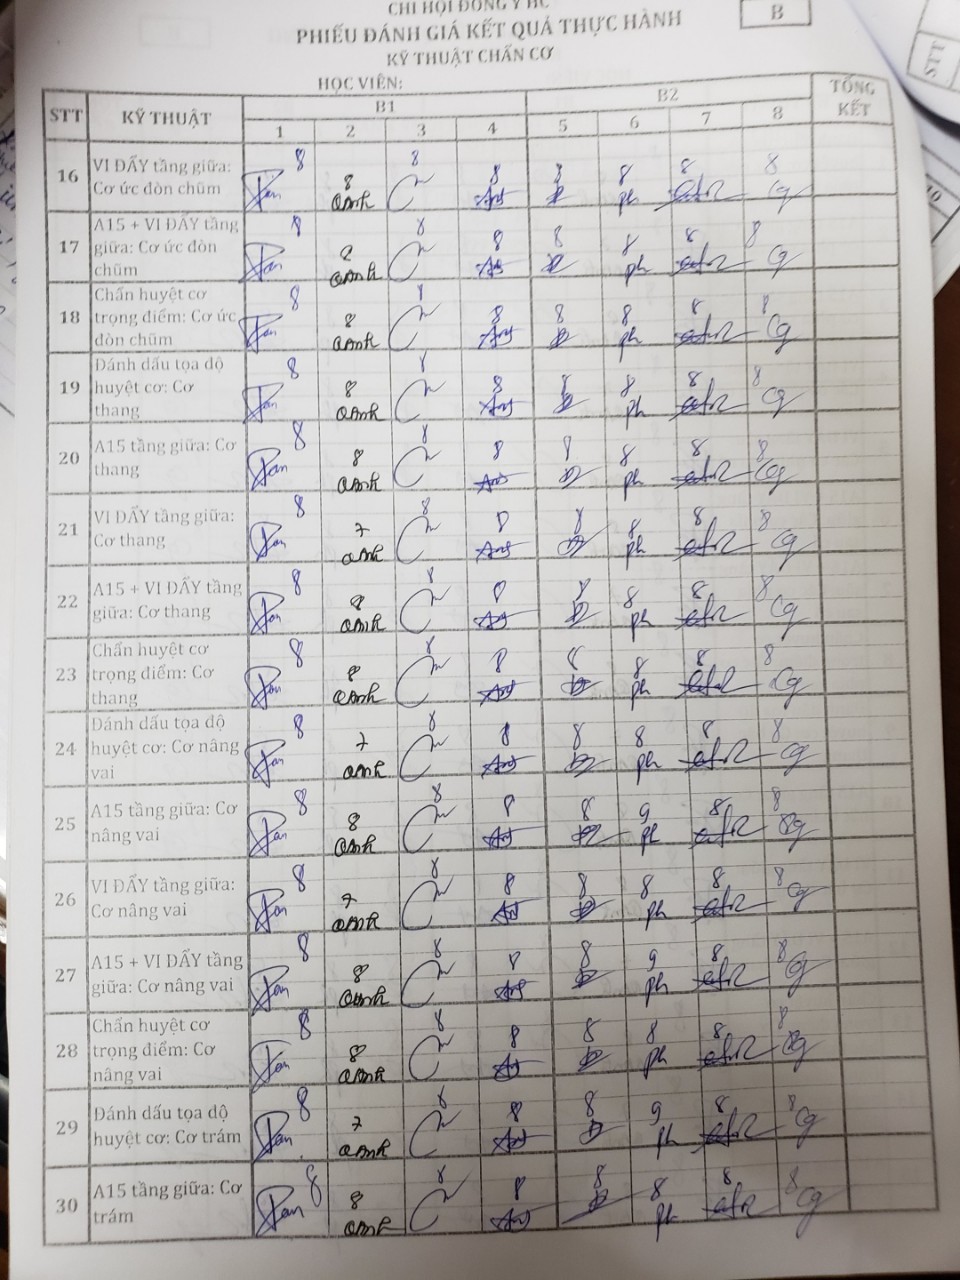 CHI HỘI ĐÔNG Y HC
B
PHIẾU ĐÁNH GIÁ KẾT QUẢ THỰC HÀNH
KỸ THUẬT CHẨN CƠ
HỌC VIÊN:
STT KỸ THUẬT B1 B2 TỔNG KẾT
1 2 3 4 5 6 7 8
16 VI ĐẨY tầng giữa: Cơ ức đòn chũm 8 8 8 8 8 8 8 8
QAnh ph Cg
17 A15 + VI ĐẨY tầng giữa: Cơ ức đòn chũm 8 8 8 8 8 8 8 8
QAnh ph Cg
18 Chẩn huyệt cơ trọng điểm: Cơ ức đòn chũm 8 8 8 8 8 8 8 8
QAnh ph Cg
19 Đánh dấu tọa độ huyệt cơ: Cơ thang 8 8 8 8 8 8 8 8
QAnh ph Cg
20 A15 tầng giữa: Cơ thang 8 8 8 8 8 8 8 8
QAnh ph Cg
21 VI ĐẨY tầng giữa: Cơ thang 8 7 8 8 8 8 8 8
QAnh ph Cg
22 A15 + VI ĐẨY tầng giữa: Cơ thang 8 8 8 8 8 8 8 8
QAnh ph Cg
23 Chẩn huyệt cơ trọng điểm: Cơ thang 8 8 8 8 8 8 8 8
QAnh ph Cg
24 Đánh dấu tọa độ huyệt cơ: Cơ nâng vai 8 7 8 8 8 8 8 8
QAnh ph Cg
25 A15 tầng giữa: Cơ nâng vai 8 8 8 8 8 9 8 8
QAnh ph Cg
26 VI ĐẨY tầng giữa: Cơ nâng vai 8 7 8 8 8 8 8 8
QAnh ph Cg
27 A15 + VI ĐẨY tầng giữa: Cơ nâng vai 8 8 8 8 8 9 8 8
QAnh ph Cg
28 Chẩn huyệt cơ trọng điểm: Cơ nâng vai 8 8 8 8 8 8 8 8
QAnh ph Cg
29 Đánh dấu tọa độ huyệt cơ: Cơ trám 8 7 8 8 8 9 8 8
QAnh ph Cg
30 A15 tầng giữa: Cơ trám 8 8 8 8 8 8 8 8
QAnh ph Cg
STT